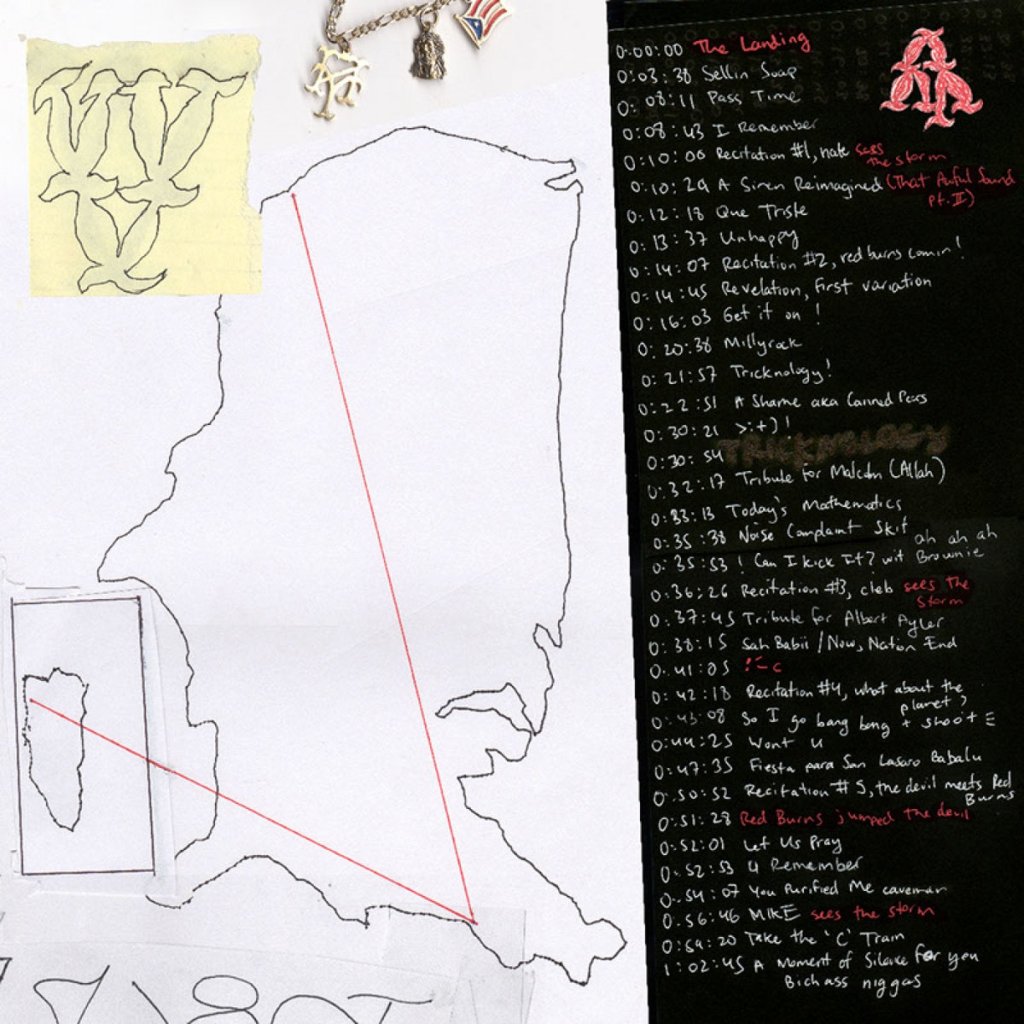 0:00:00 The Landing
0:03:38 Sellin Soap
0:08:11 Pass Time
0:08:43 I Remember
0:10:00 Recitation #1, nate sees
the storm
0:10:29 A Siren Reimagined (That Awful Sound
pt. II)
0:12:18 Que Triste
0:13:37 Unhappy
0:14:07 Recitation #2, red burns comin!
0:14:45 Revelation, First variation
0:16:03 Get it on!
0:20:38 Millyrock
0:21:57 Tricknology!
0:22:51 A Shame aka Canned Pears
0:30:21 >:+)!
0:30:54 TRICKNOLOGY
0:32:17 Tribute for Malcolm (Allah)
0:33:13 Today's Mathematics
0:35:38 Noise Complaint Skit
0:35:53 ! Can I kick It? wit Brownie
ah ah ah
0:36:26 Recitation #3, cleb sees the
Storm
0:37:45 Tribute for Albert Ayler
0:38:15 Sah Babii / Now, Nation End
0:41:05 !-c
0:42:18 Recitation #4, what about the
planet?
0:43:08 So I go bang bang + shoot E
0:44:25 Wont U
0:47:35 Fiesta para San Lasaro Babalu
0:50:52 Recitation #5, the devil meets Red
Burns
0:51:28 Red Burns jumped the devil
0:52:01 Let Us Pray
0:52:53 U Remember
0:54:07 You Purified Me caveman
0:56:46 MIKE sees the storm
0:59:20 Take the 'C' Train
1:02:45 A Moment of Silence for you
Bichass niggas